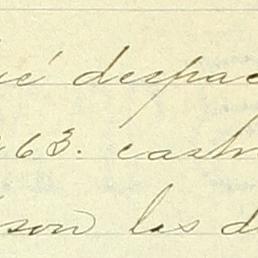 despac
63. cast
son los d